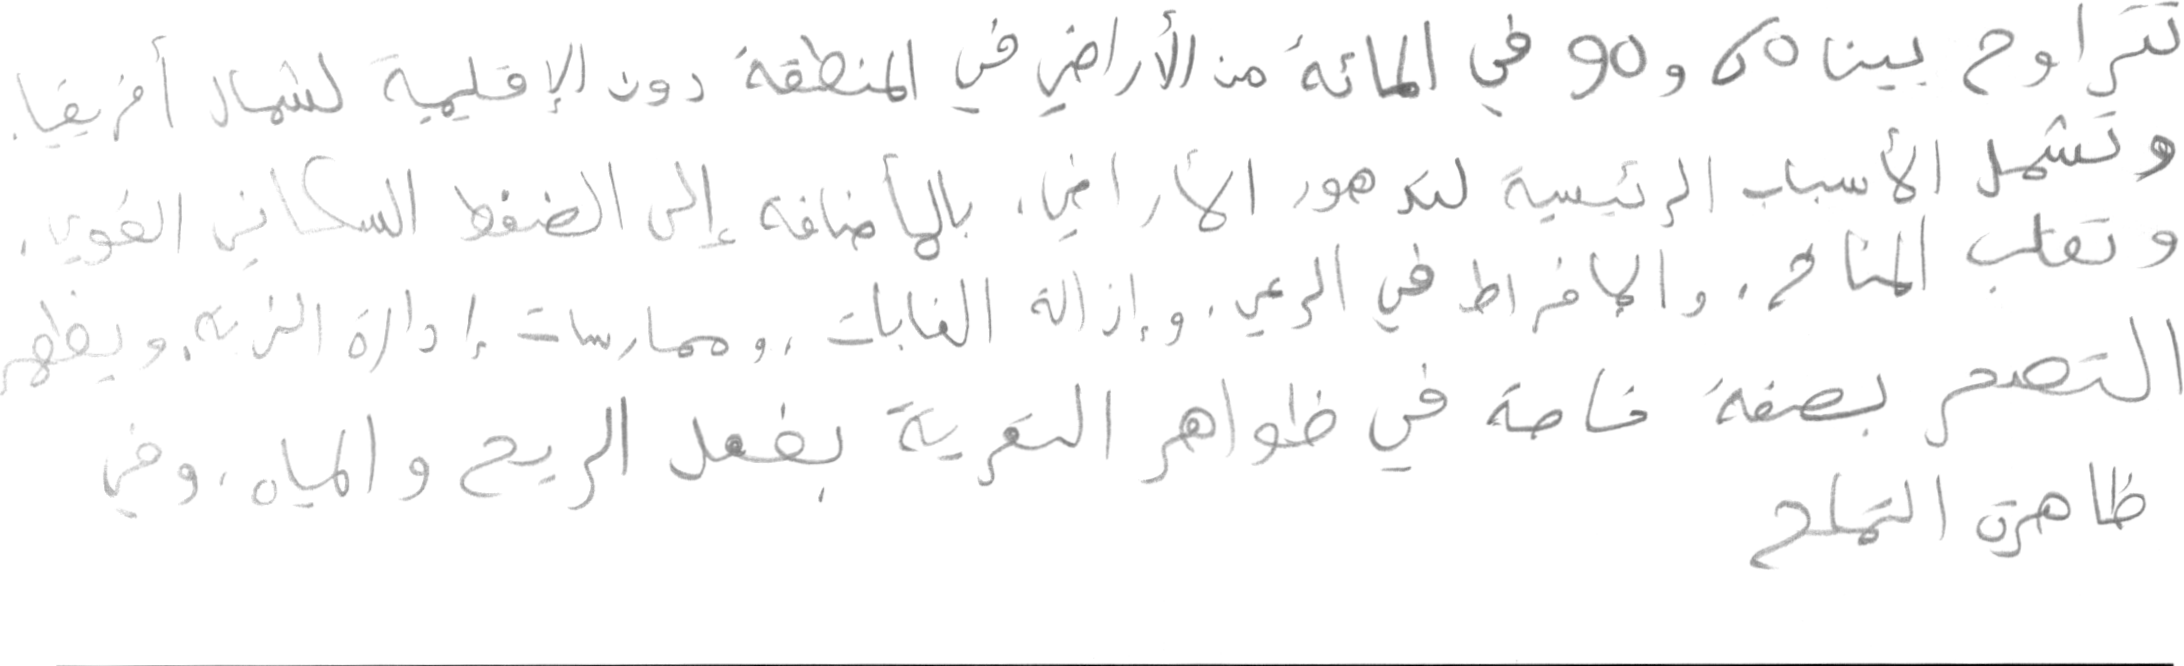 تتراوح بين 60 و 90 في المائة من الأراضي في المنطقة دون الإقليمية لشمال أفريقيا.
وتشمل الأسباب الرئيسية لتدهور الأراضي، بالإضافة إلى الضغط السكاني القوي،
وتقلب المناخ، والإفراط في الرعي، وإزالة الغابات، وممارسات إدارة التربة. ويظهر
التصحر بصفة خاصة في ظواهر التعرية بفعل الريح والمياه، وفي
ظاهرة التملح